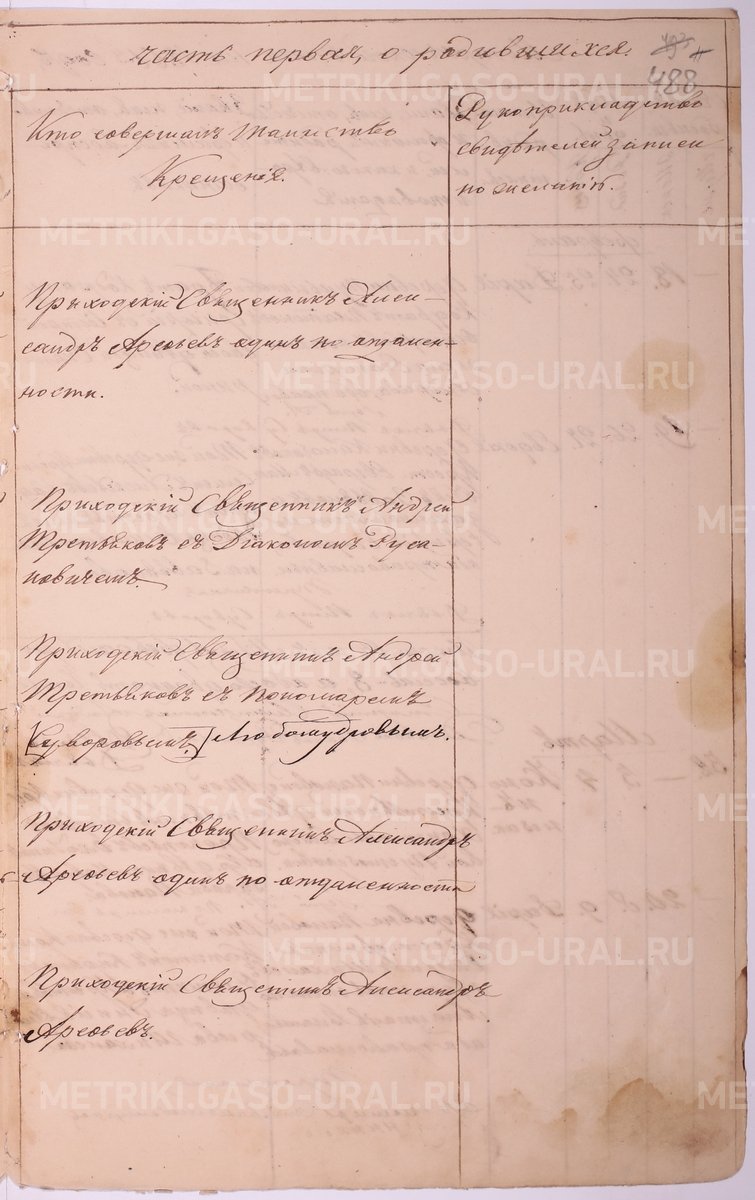 часть первая, о родившихся.
488
Кто совершалъ таинство
Крещенія.
Рукоприкладство
свидѣтелей записи
по желанію.
Приходскій Священникъ Алек-
сандръ Арефьевъ одинъ по отдален-
ности.
Приходскій Священникъ Андрей
Третьяковъ съ Діакономъ Руса-
новичемъ.
Приходскій Священникъ Андрей
Третьяковъ съ пономаремъ
[Суворовымъ] Любомудровымъ.
Приходскій Священникъ Александръ
Арефьевъ одинъ по отдаленности
Приходскій Священникъ Александръ
Арефьевъ.
METRIKI.GASO-URAL.RU